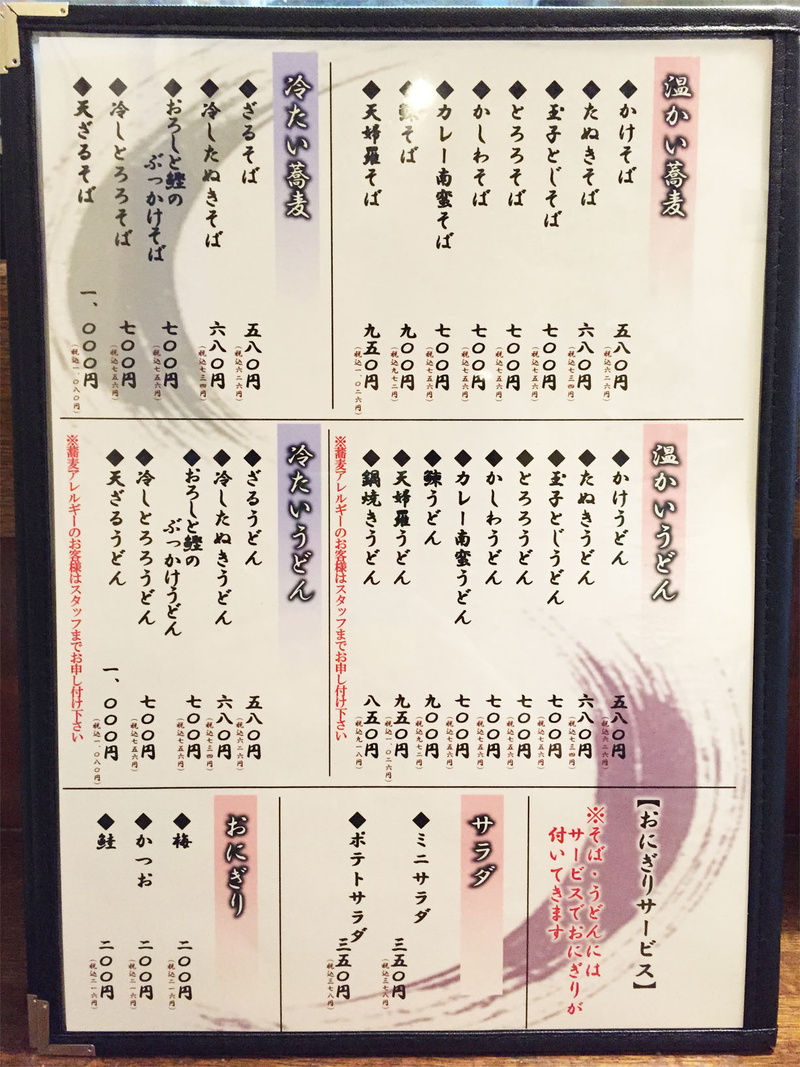 温かい蕎麦
◆かけそば 五八〇円
(税込六二六円)
◆たぬきそば 六八〇円
(税込七三四円)
◆玉子とじそば 七〇〇円
(税込七五六円)
◆とろろそば 七〇〇円
(税込七五六円)
◆かしわそば 七〇〇円
(税込七五六円)
◆カレー南蛮そば 七〇〇円
(税込七五六円)
◆鰊そば 九〇〇円
(税込九七二円)
◆天婦羅そば 九五〇円
(税込一、〇二六円)
冷たい蕎麦
◆ざるそば 五八〇円
(税込六二六円)
◆冷したぬきそば 六八〇円
(税込七三四円)
◆おろしと鰹の
ぶっかけそば 七〇〇円
(税込七五六円)
◆冷しとろろそば 七〇〇円
(税込七五六円)
◆天ざるそば 一、〇〇〇円
(税込一、〇八〇円)
温かいうどん
◆かけうどん 五八〇円
(税込六二六円)
◆たぬきうどん 六八〇円
(税込七三四円)
◆玉子とじうどん 七〇〇円
(税込七五六円)
◆とろろうどん 七〇〇円
(税込七五六円)
◆かしわうどん 七〇〇円
(税込七五六円)
◆カレー南蛮うどん 七〇〇円
(税込七五六円)
◆鰊うどん 九〇〇円
(税込九七二円)
◆天婦羅うどん 九五〇円
(税込一、〇二六円)
◆鍋焼きうどん 八五〇円
(税込九一八円)
※蕎麦アレルギーのお客様はスタッフまでお申し付け下さい
冷たいうどん
◆ざるうどん 五八〇円
(税込六二六円)
◆冷したぬきうどん 六八〇円
(税込七三四円)
◆おろしと鰹の
ぶっかけうどん 七〇〇円
(税込七五六円)
◆冷しとろろうどん 七〇〇円
(税込七五六円)
◆天ざるうどん 一、〇〇〇円
(税込一、〇八〇円)
※蕎麦アレルギーのお客様はスタッフまでお申し付け下さい
【おにぎりサービス】
※そば・うどんには
サービスでおにぎりが
付いてきます
サラダ
◆ミニサラダ 三五〇円
(税込三七八円)
◆ポテトサラダ 三五〇円
(税込三七八円)
おにぎり
◆梅 二〇〇円
(税込二一六円)
◆かつお 二〇〇円
(税込二一六円)
◆鮭 二〇〇円
(税込二一六円)